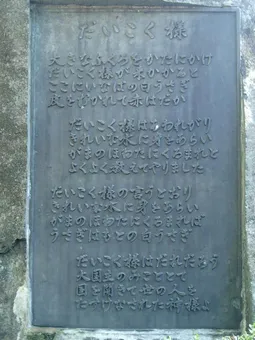 だいこく様
大きなふくろをかたにかけ
だいこく様が来かかると
ここにいなばの白うさぎ
皮をむかれてあかはだか
だいこく様はあわれがり
きれいな水に身をあらい
がまのほわたにくるまれと
よくよく教えてやりました
だいこく様の言うとおり
きれいな水に身をあらい
がまのほわたにくるまれば
うさぎはもとの白うさぎ
だいこく様はだれだろう
大国主のみこととて
国を開きて世の人を
たすけなされた神様よ